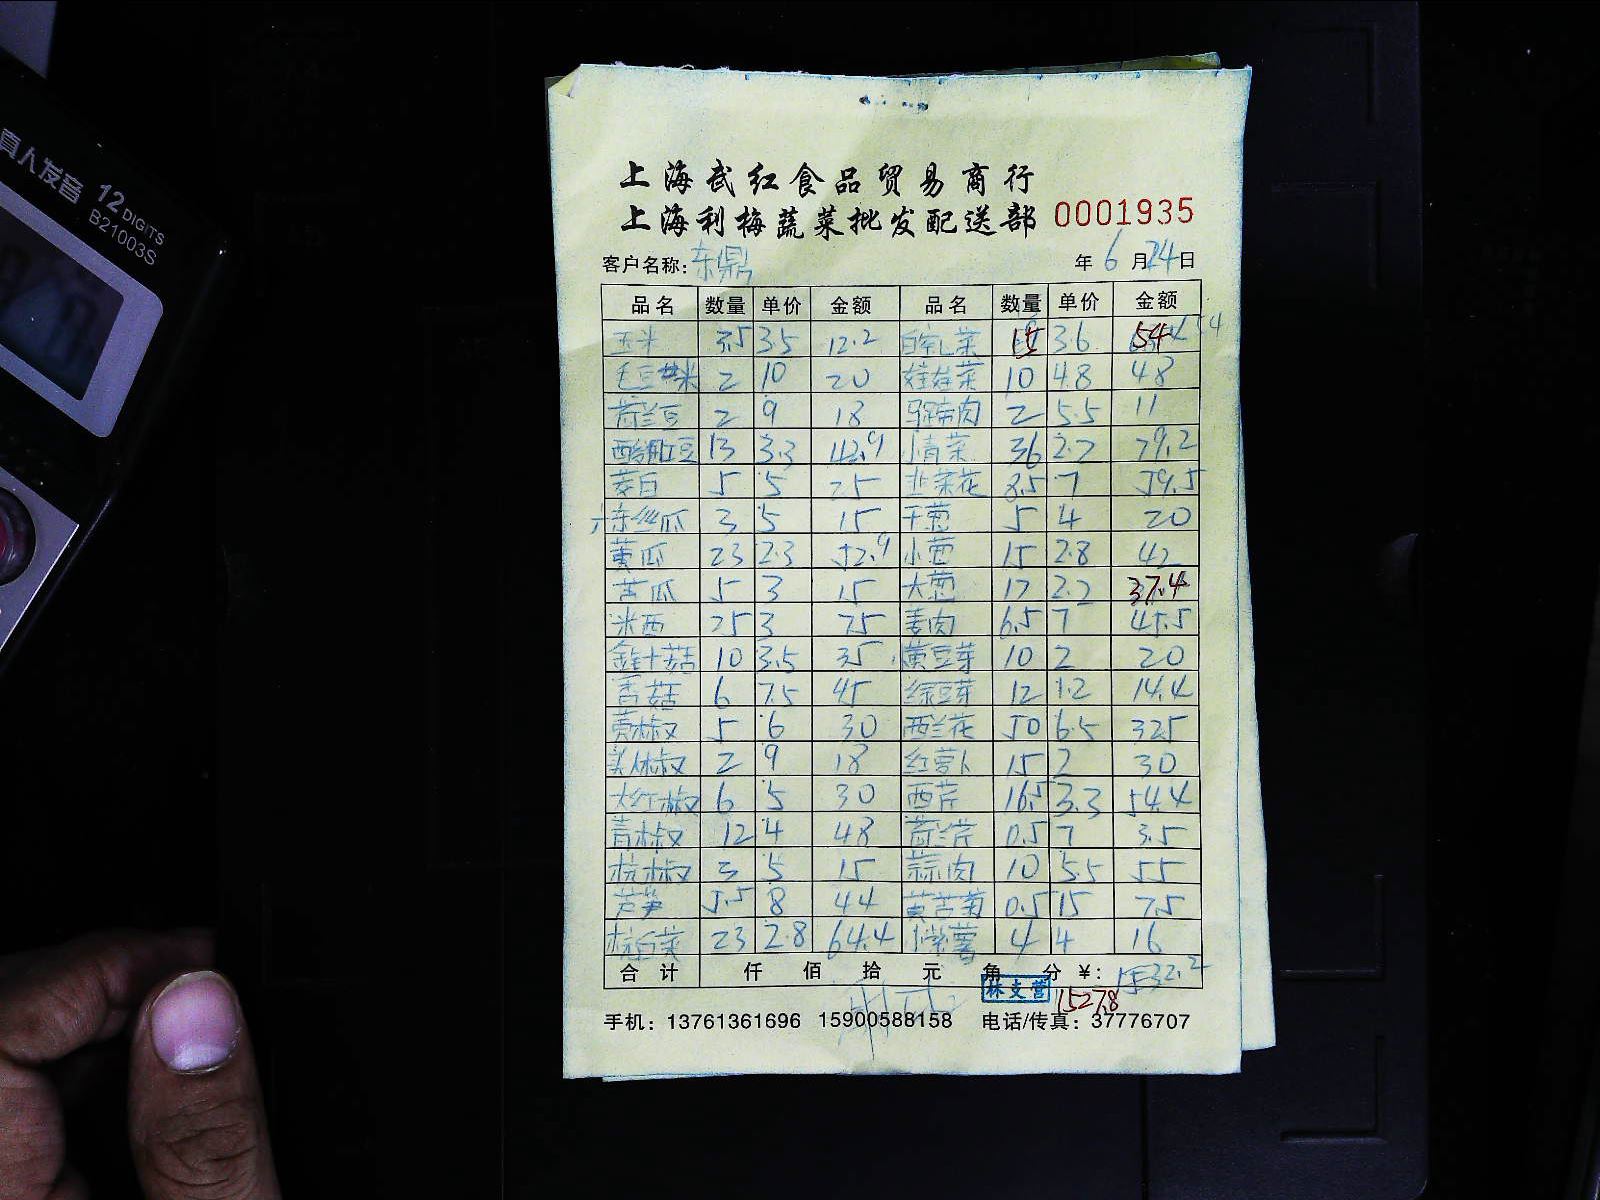 真人发音 12 DIGITS
B21003S
上海武红食品贸易商行
上海利梅蔬菜批发配送部 0001935
客户名称: 东鼎 年 6 月 24 日
品名 数量 单价 金额 品名 数量 单价 金额
玉米 3.5 3.5 12.2 白乳菜 15 3.6 54 54
毛豆米 2 10 20 娃娃菜 10 4.8 48
荷兰豆 2 9 18 马蹄肉 2 5.5 11
酸豇豆 13 3.3 42.9 小青菜 36 2.2 79.2
茭白 5 5 25 韭菜花 8.5 7 59.5
丝瓜 3 5 15 干葱 5 4 20
黄瓜 23 2.3 52.9 小葱 15 2.8 42
苦瓜 5 3 15 大葱 17 2.2 37.4
米西 25 3 75 姜肉 6.5 7 45.5
金针菇 10 3.5 35 黄豆芽 10 2 20
香菇 6 7.5 45 绿豆芽 12 1.2 14.4
黄椒 5 6 30 西兰花 50 6.5 325
美人椒 2 9 18 红萝卜 15 2 30
大红椒 6 5 30 西芹 16.5 3.3 54.4
青椒 12 4 48 荷兰芹 0.5 7 3.5
杭椒 3 5 15 蒜肉 10 5.5 55
芦笋 5.5 8 44 黄苦菊 0.5 15 7.5
杭白菜 23 2.8 64.4 小紫薯 4 4 16
合计 仟 佰 拾 元 角 分 ¥: 1532.2
林支营 1527.8
手机: 13761361696 15900588158 电话/传真: 37776707